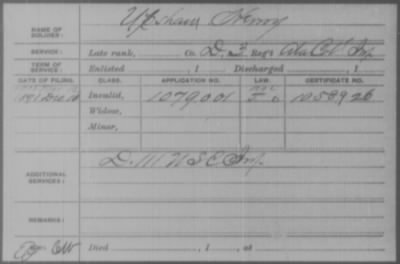 NAME OF SOLDIER: Upshaw Henry
SERVICE: Late rank, Co. D, 3 Reg't Ala C. V. Inf.
TERM OF SERVICE: Enlisted , 1 Discharged , 1
DATE OF FILING. CLASS. APPLICATION NO. LAW. CERTIFICATE NO.
Invalid, 1079001 1058926
Widow,
Minor,
ADDITIONAL SERVICES: D. 111 U S C Inf.
REMARKS:
Died , 1 , at